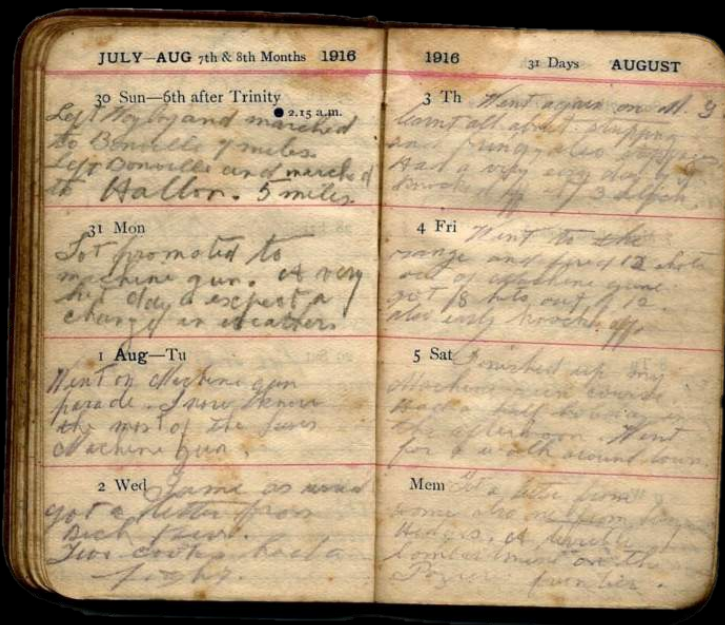 JULY—AUG 7th & 8th Months 1916
30 Sun—6th after Trinity
● 2.15 a.m.
Left and marched
to Bonville 9 miles.
Left Bonville and marched
to Halloy. 5 miles.
31 Mon
Got promoted to
machine gun. A very
hot day & expect a
change in weather.
1 Aug—Tu
Went on Machine gun
parade. I now know
the most of the
Machine Gun.
2 Wed Same as usual
got a letter from
Dick
Two cooks had a
fight.
1916 31 Days AUGUST
3 Th Went again on M. G
learnt all about stripping
and firing also stoppages
Had a very easy day
knocked off at 3 o'clock.
4 Fri Went to the
range and fired 12 shots
out of Machine gun
got 8 hits out of 12.
also early knock off.
5 Sat Finished up my
Machine gun course
Had a half holiday in
the afternoon. Went
for a walk around town.
Mem Got a letter from
home also
Hedges. A terrible
bombardment on the
Pozieres frontier.